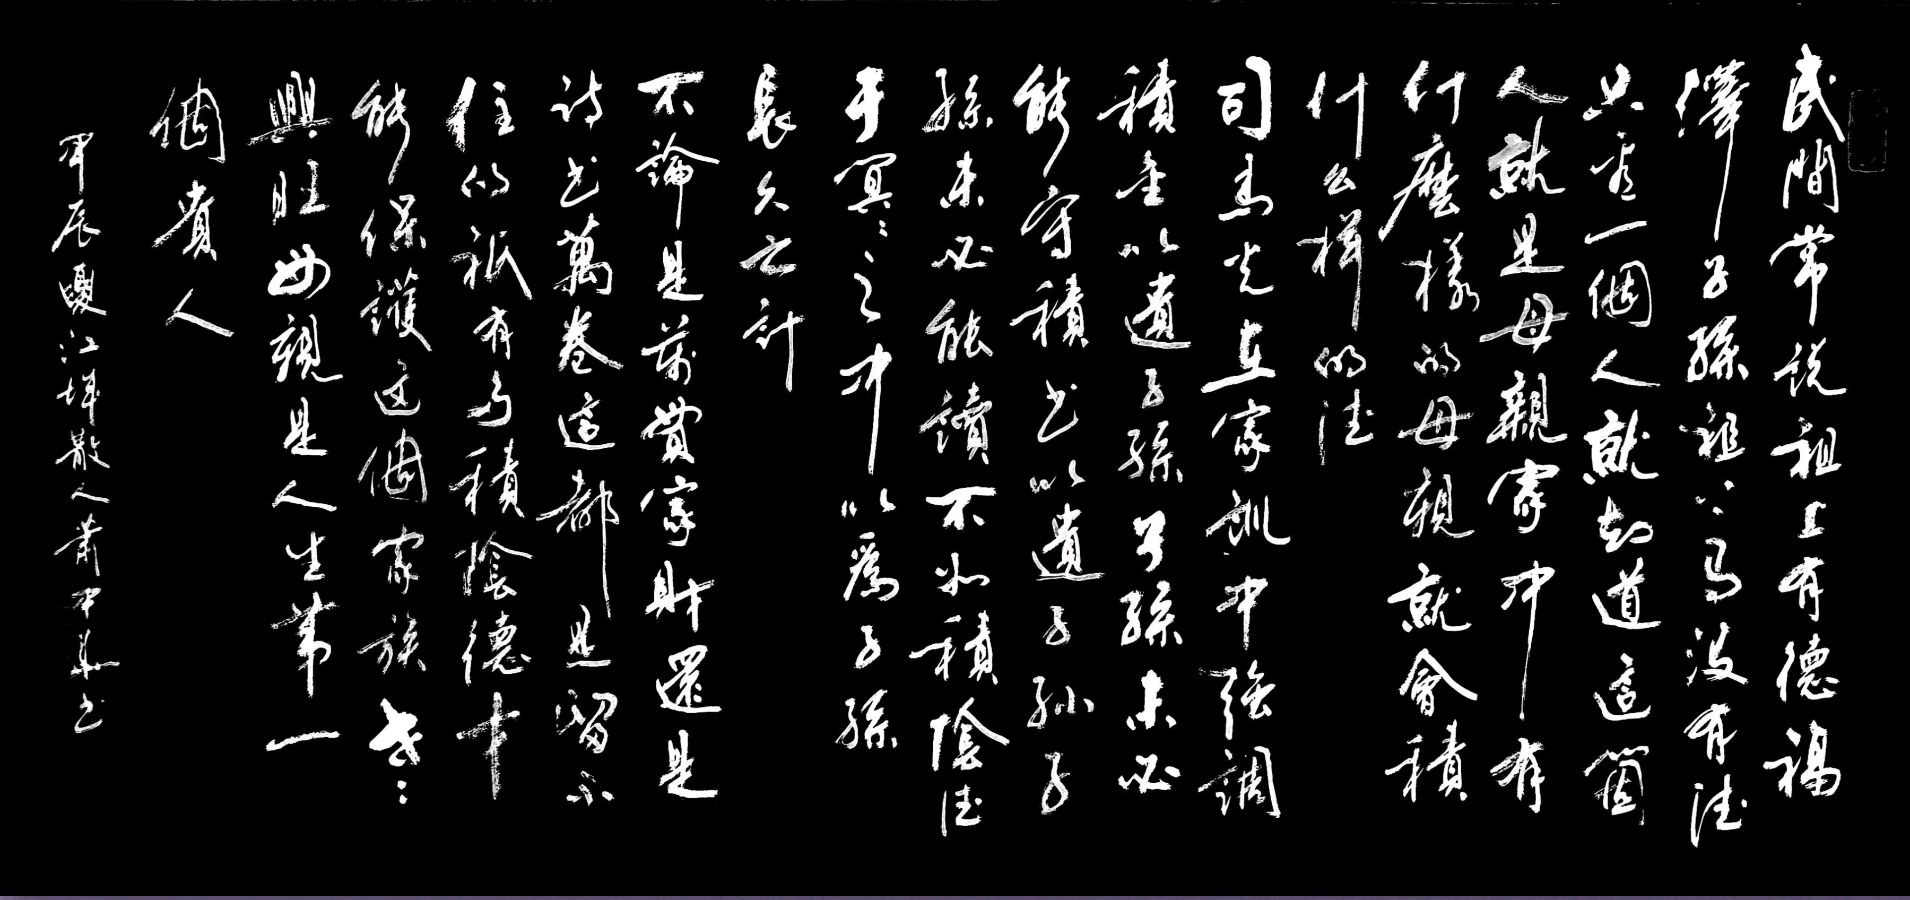 民間常说祖上有德福
澤子孫祖上有没有德
只需一個人就知道這箇
人就是母親家中有
什麼樣的母親就會積
什么样的德
司馬光在家訓中強調
積金以遺子孫子孫未必
能守積书以遺子孙子
孫未必能讀不如積陰德
于冥冥之中以為子孫
長久之計
不論是萬貫家財還是
诗书萬卷這都是留不
住的祇有多積陰德才
能保護这個家族世世
興旺母親是人生第一
個貴人
甲辰夏江城散人萧中華书